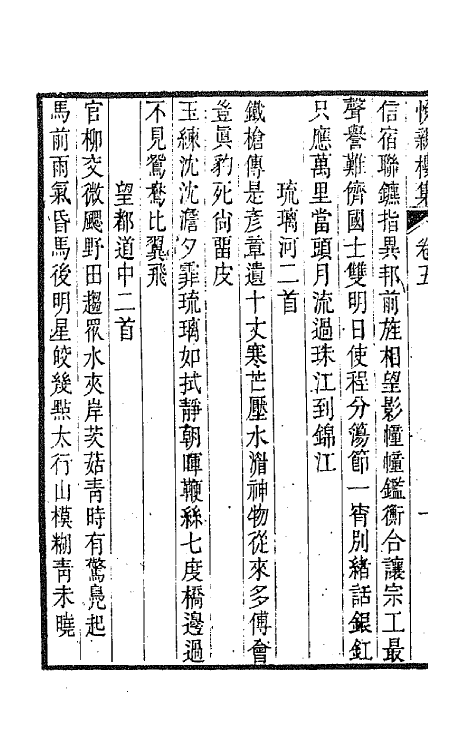 懷親樓集 卷五 一
信宿聯鑣指異邦前旌相望影幢幢鑑衡合讓宗工最
聲譽難儕國士雙明日使程分蕩節一宵別緒話銀釭
只應萬里當頭月流過珠江到錦江
琉璃河二首
鐵槍傳是彥章遺十丈寒芒壓水湄神物從來多傅會
豈眞豹死尙畱皮
玉練沈沈澹夕霏琉璃如拭靜朝暉鞭絲七度橋邊過
不見鴛鴦比翼飛
望都道中二首
官柳交微颸野田趨眾水夾岸茨菇靑時有驚鳧起
馬前雨氣昏馬後明星皎幾點太行山模糊靑未曉